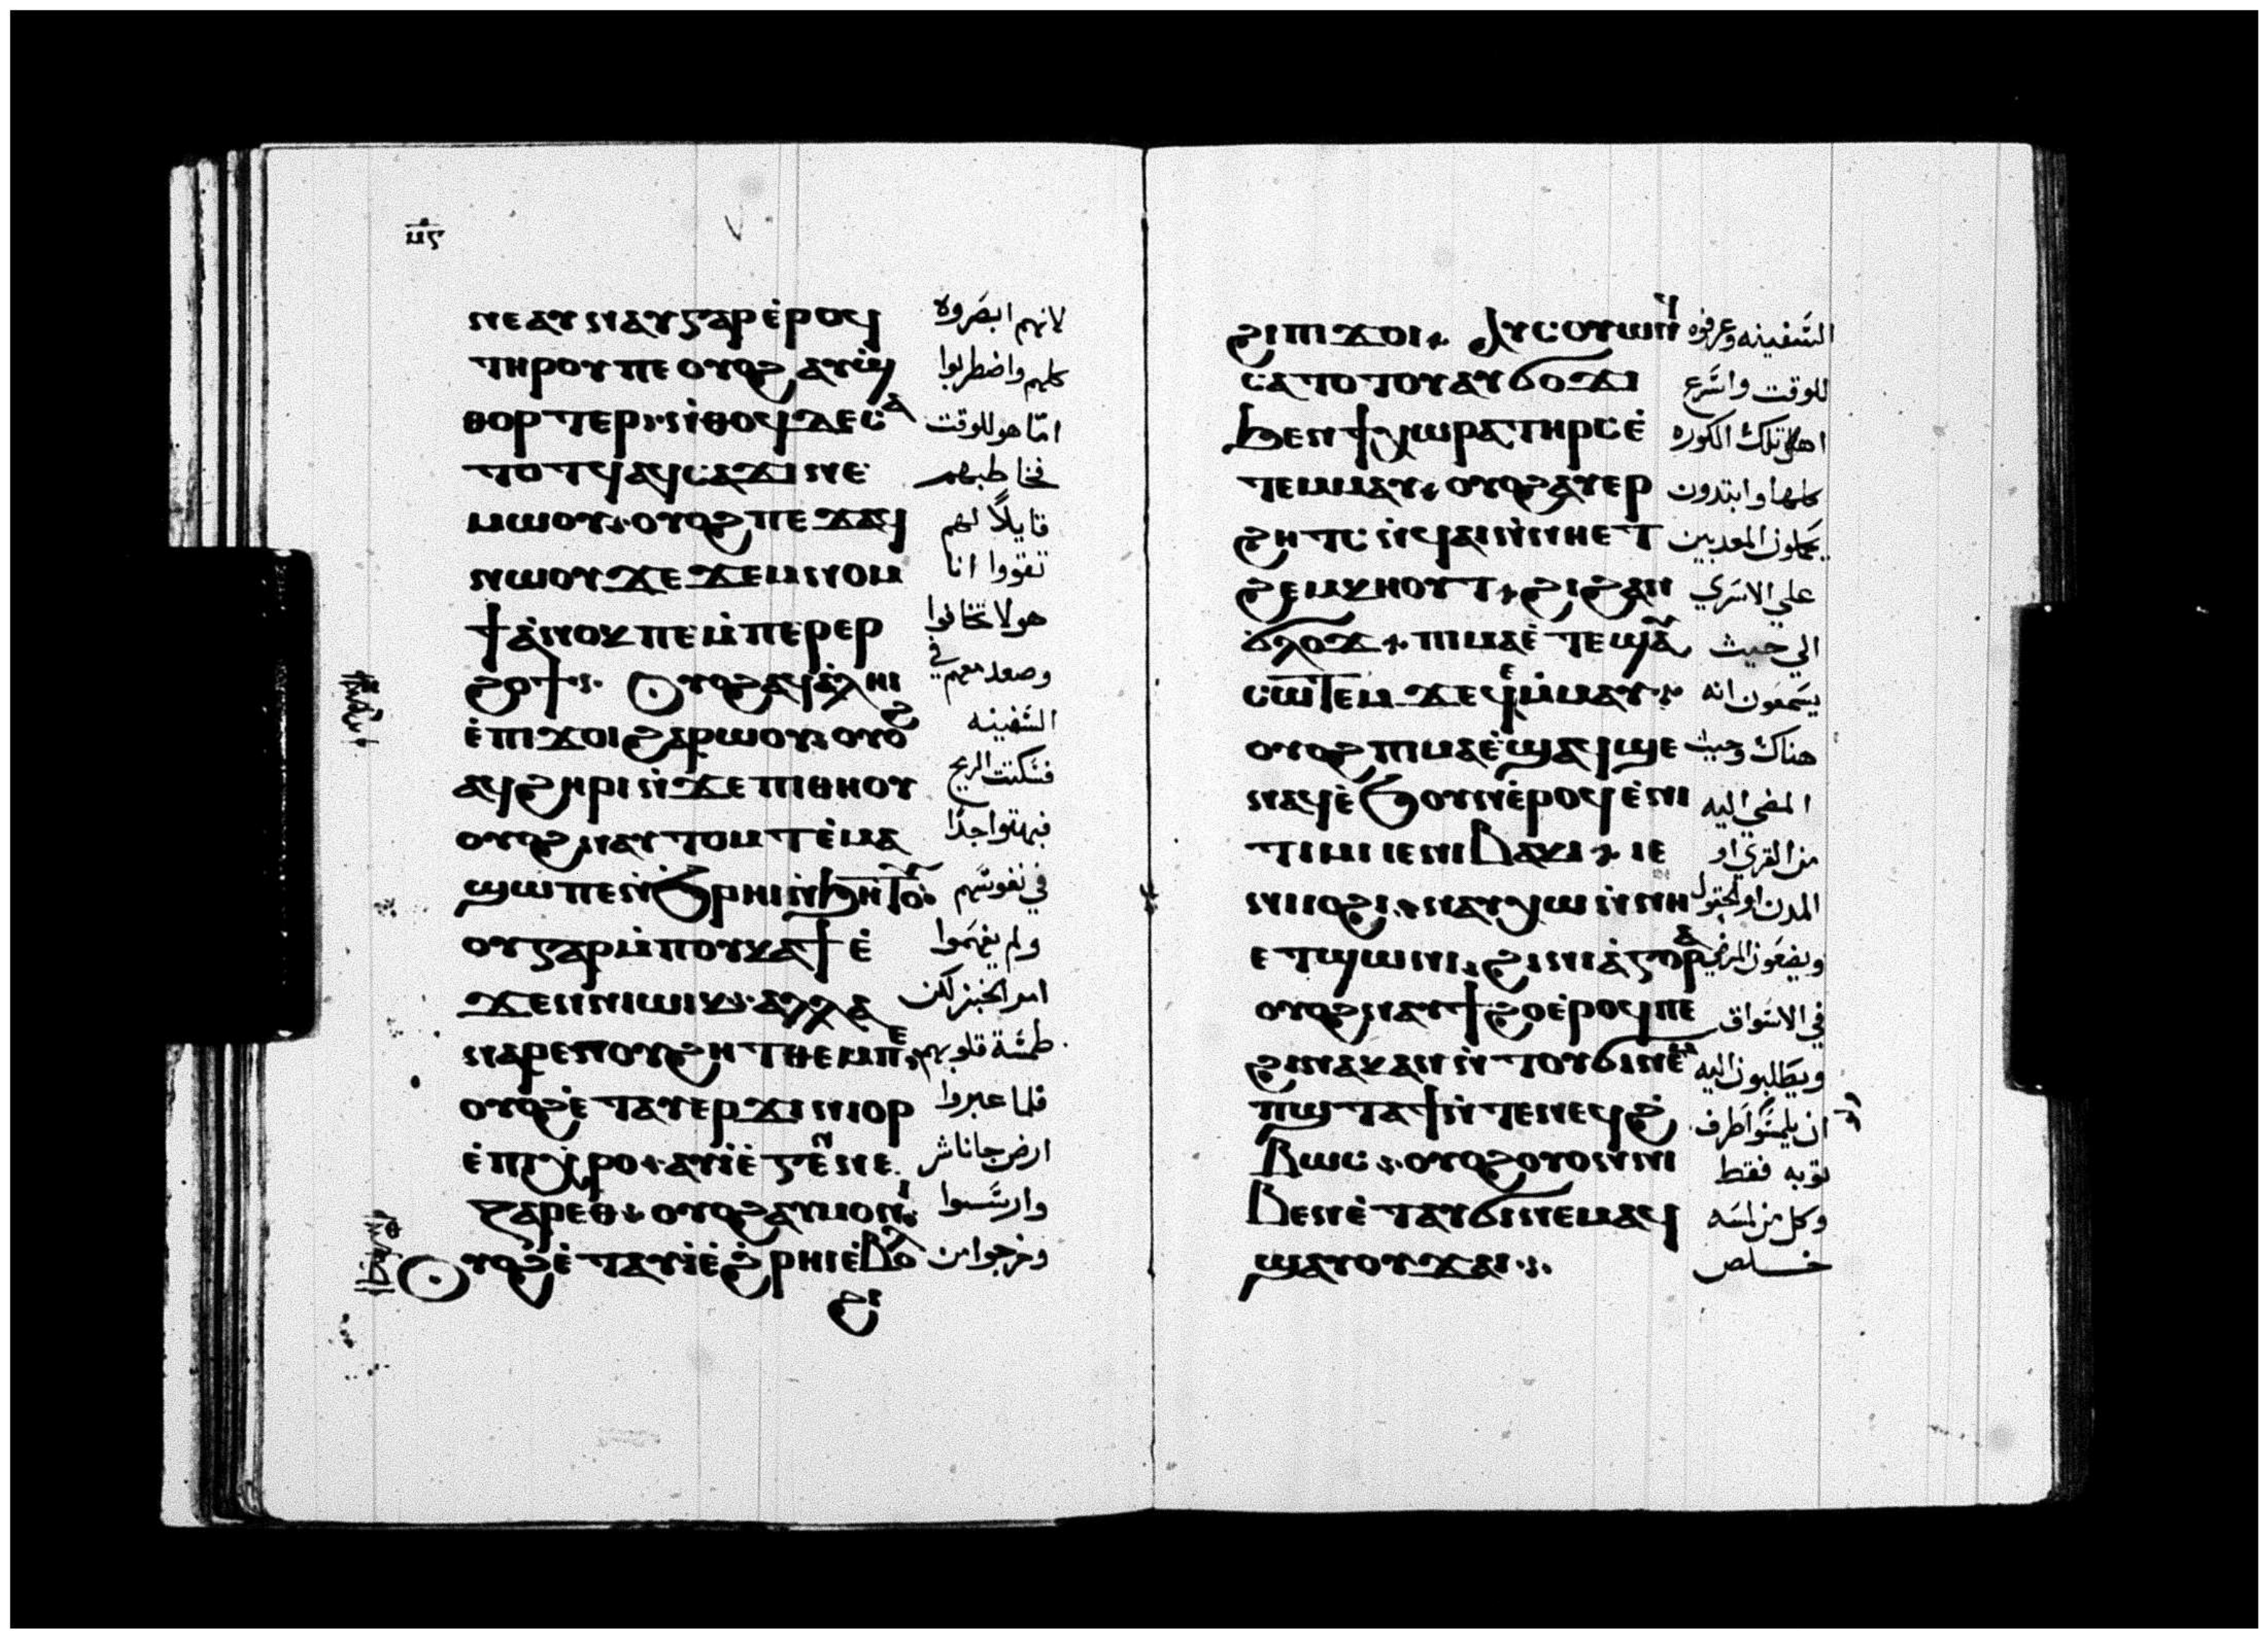 ⲙ︦ⲋ︦
ⲛⲉⲁⲩⲛⲁⲩⲅⲁⲣⲉ̀ⲣⲟϥ لانهم ابصروه
ⲧⲏⲣⲟⲩⲡⲉ ⲟⲩⲟϩ ⲁⲩϣ̀ كلهم واضطربوا
ⲑⲟⲣⲧⲉⲣ ⲛ̀ⲑⲟϥⲇⲉⲥⲁ امّا هو للوقت
ⲧⲟⲧϥⲁϥⲥⲁϫⲓⲛⲉ فخاطبهم
ⲙⲱⲟⲩ ⲟⲩⲟϩⲡⲉϫⲁϥ قايلاً لهم
ⲛⲱⲟⲩϫⲉϫⲉⲙⲛⲟⲙ تقووا انا
ϯⲁ̀ⲛⲟⲕⲡⲉⲙ̀ⲡⲉⲣⲉⲣ هو لا تخافوا
ϩⲟϯ Ⲟⲩⲟϩⲁϥⲁ̀ⲗⲏⲓ وصعد معهم في
ⲉ̀ⲡⲓϫⲟⲓϩⲁⲣⲱⲟⲩ ⲟⲩⲟϩ السفينه
ⲁϥϩⲏⲣⲓⲛ̀ϫⲉⲡⲓⲑⲏⲟⲩ فسكنت الريح
ⲟⲩⲟϩⲛⲁⲩⲧⲟⲙⲧⲉ̀ⲙⲁ فبهتوا جدًا
ϣⲱⲡⲉⲛ̀ϧⲣⲏⲓⲛ̀ϧⲏⲧⲟⲩ في نفوسهم
ⲟⲩⲅⲁⲣⲙ̀ⲡⲟⲩⲕⲁϯⲉ̀ ولم يفهموا
ϫⲉⲛⲛⲓⲱⲓⲕ ⲁⲗⲗⲁ امر الخبز لكن
ⲛⲁⲣⲉⲡⲟⲩϩⲏⲧⲑⲉⲙⲡⲉ طمسة قلوبهم
ⲟⲩⲟϩⲉ̀ⲧⲁⲩⲉⲣϫⲓⲛⲓⲟⲣ فلما عبروا
ⲉ̀ⲡⲓⲭⲣⲟ ⲁⲩⲓ̀ⲉ̀ⲅⲉⲛⲛⲉ ارض جاناشر
ⲍⲁⲣⲉⲑ ⲟⲩⲟϩⲁⲩⲙⲟⲛⲓ وارسوا
Ⲟⲩⲟϩⲉ̀ⲧⲁⲩⲓ̀ⲉ̀ϩ̀ⲣⲏⲓⲉ̀ⲃⲟⲗ وخرجوا من
ϩⲓ
ϩⲓⲡⲓϫⲟⲓ Ⲁⲩⲥⲟⲩⲱⲛϥ السفينه وعرفوه
ⲥⲁⲧⲟⲧⲟⲩⲁⲩϭⲟϫⲓ للوقت واسرع
ϧⲉⲛϯⲭⲱⲣⲁⲧⲏⲣⲥⲉ̀ اهل تلك الكوره
ⲧⲉⲙⲙⲁⲩ ⲟⲩⲟϩⲁⲩⲉⲣ كلها وابتدون
ϩⲏⲧⲥⲛ̀ϥⲁⲓⲛ̀ⲛⲏⲉⲧ يحملون المعدبين
ϩⲉⲙⲕⲏⲟⲩⲧ ϩⲓϩⲁⲛ علي الاسري
ϭⲗⲟϫ ⲡⲓⲙⲁⲉ̀ⲧⲉϣⲁⲩ الي حيث
ⲥⲱⲧⲉⲙ ϫⲉϥⲙ̀ⲙⲁⲩ يسمعون انه
ⲟⲩⲟϩⲡⲓⲙⲁⲉ̀ϣⲁϥϣⲉ هناك وحيث
ⲛⲁϥⲉ̀ϧⲟⲩⲛⲉ̀ⲣⲟϥⲉ̀ⲛⲓ المضي اليه
ϯⲙⲓ ⲓⲉⲛⲓⲃⲁⲕⲓ ⲓⲉ من القري او
ⲛⲓⲓⲟϩⲓ ⲛⲁⲩⲭⲱⲛ̀ⲛⲏ المدن او الحقول
ⲉⲧϣⲱⲛⲓ ϩⲓⲛⲓⲁ̀ⲅⲟⲣⲁ ويضعون المرضي
ⲟⲩⲟϩⲛⲁⲩϯϩⲟⲉ̀ⲣⲟϥⲡⲉ في الاسواق
ϩⲓⲛⲁⲕⲁⲛⲛ̀ⲧⲟⲩϭⲓⲛⲉⲙ ويطلبون اليه
ⲡϣⲧⲁϯⲛ̀ⲧⲉⲡⲉϥϩ̀ ان يلمسوا طرف
ⲃⲱⲥ ⲟⲩⲟϩⲟⲩⲟⲛⲛⲓ توبه فقط
ⲃⲉⲛⲉ̀ⲧⲁⲩϭⲓⲛⲉⲙⲁϥ وكل من لمسه
ϣⲁⲩⲟⲩϫⲁⲓ خلص